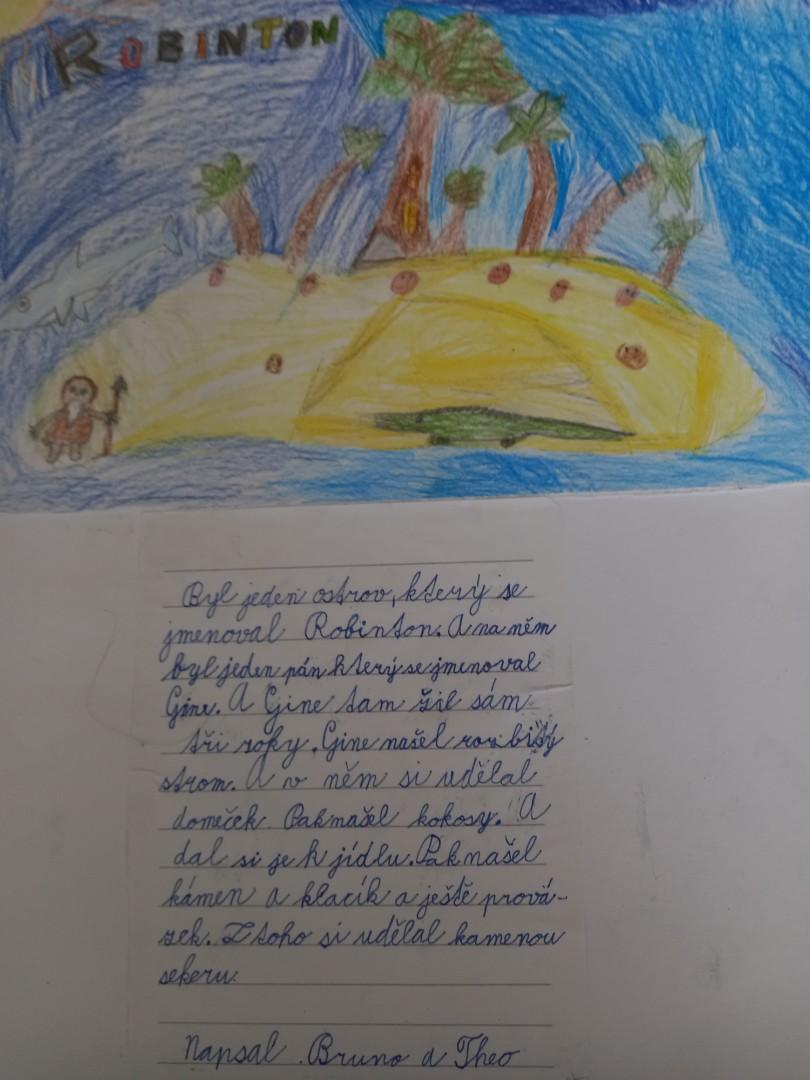 ROBINTON
Byl jeden ostrov, který se
jmenoval Robinton. A na něm
byl jeden pán který se jmenoval
Gine. A Gine tam žil sám
tři roky. Gine našel rozbitý
strom. A v něm si udělal
domeček. Pak našel kokosy. A
dal si je k jídlu. Pak našel
kámen a klacík a ještě prová-
zek. Z toho si udělal kamenou
sekeru.
Napsal Bruno a Theo